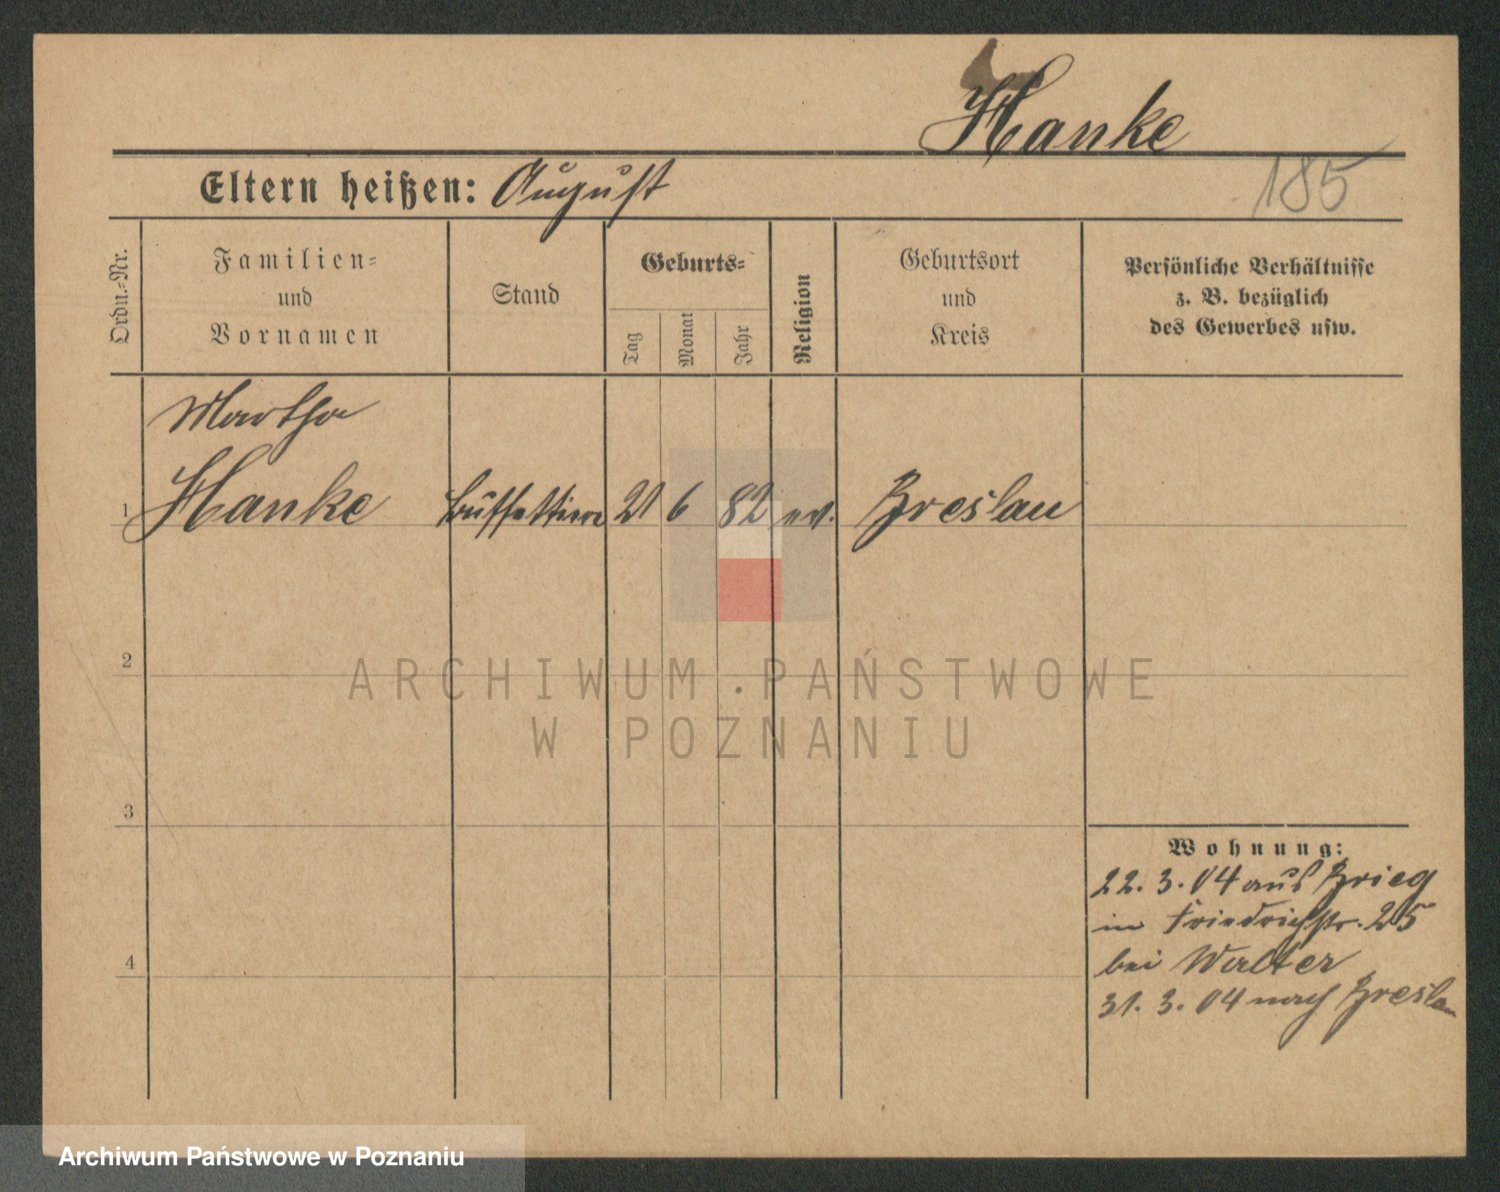 Hanke
185
Eltern heißen: August
Ordn.-Nr.
Familien-
und
Vornamen
Stand
Geburts-
Tag
Monat
Jahr
Religion
Geburtsort
und
Kreis
Persönliche Verhältnisse
z. B. bezüglich
des Gewerbes usw.
Martha
1 Hanke Buffettiere 21 6 82 ev. Breslau
2
3
4
Wohnung:
22. 3. 04 aus Brieg
in Friedrichstr. 25
bei Walter
31. 3. 04 nach Breslau
ARCHIWUM PAŃSTWOWE
W POZNANIU
Archiwum Państwowe w Poznaniu